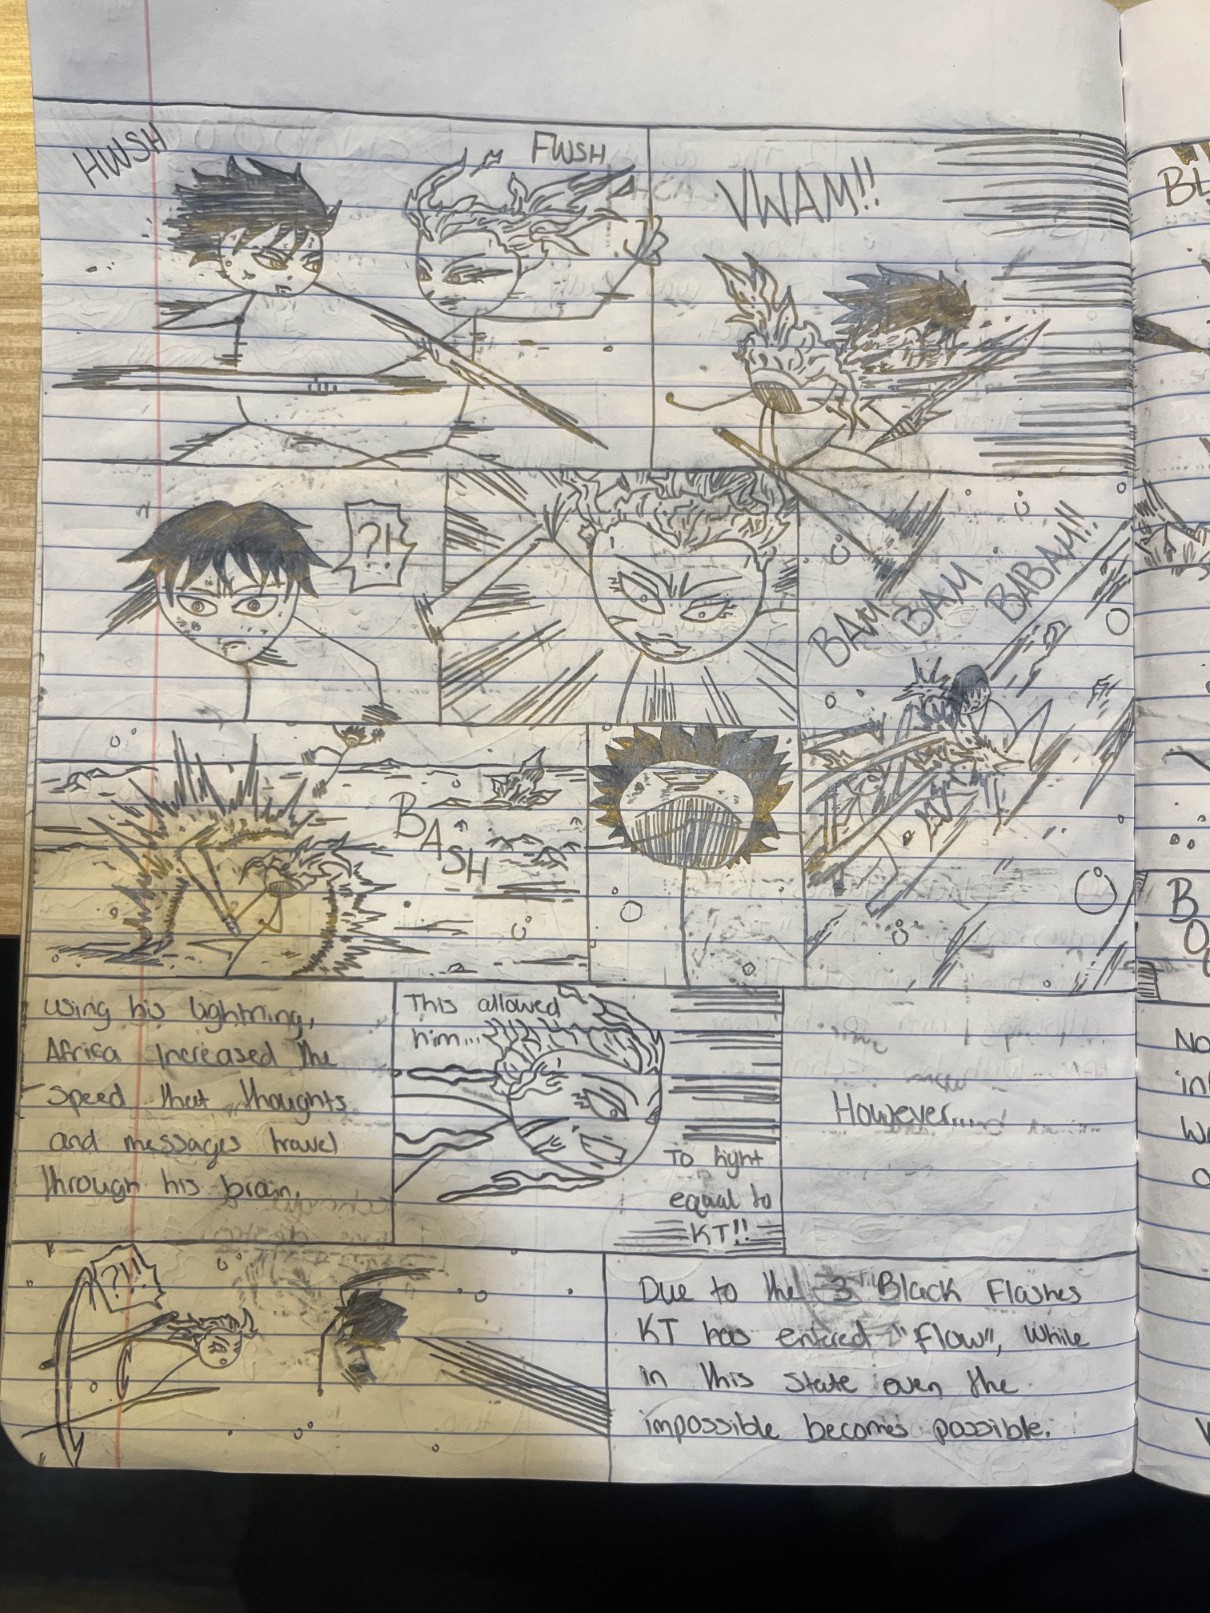 HWSH
FWSH
VWAM!!
?!
BAM BAM BABAM!!
BASH
using his lightning,
Africa increased the
speed that thoughts
and messages travel
through his brain.
This allowed
him...
To fight
equal to
KT!!
However.....
?!!
Due to the 3 Black Flashes
KT has entered "flow", While
in this state even the
impossible becomes possible.